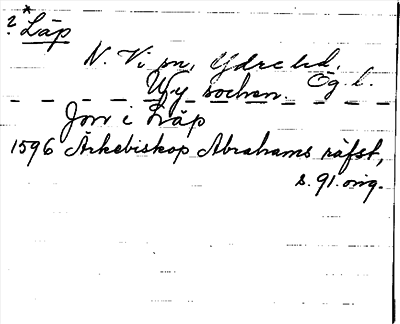 ? *Läp
N. Vi sn, Ydre hd.
Wy sochen. Ög. l.
Jon i Läp
1596 Ärkebiskop Abrahams räfst,
s. 91. orig.